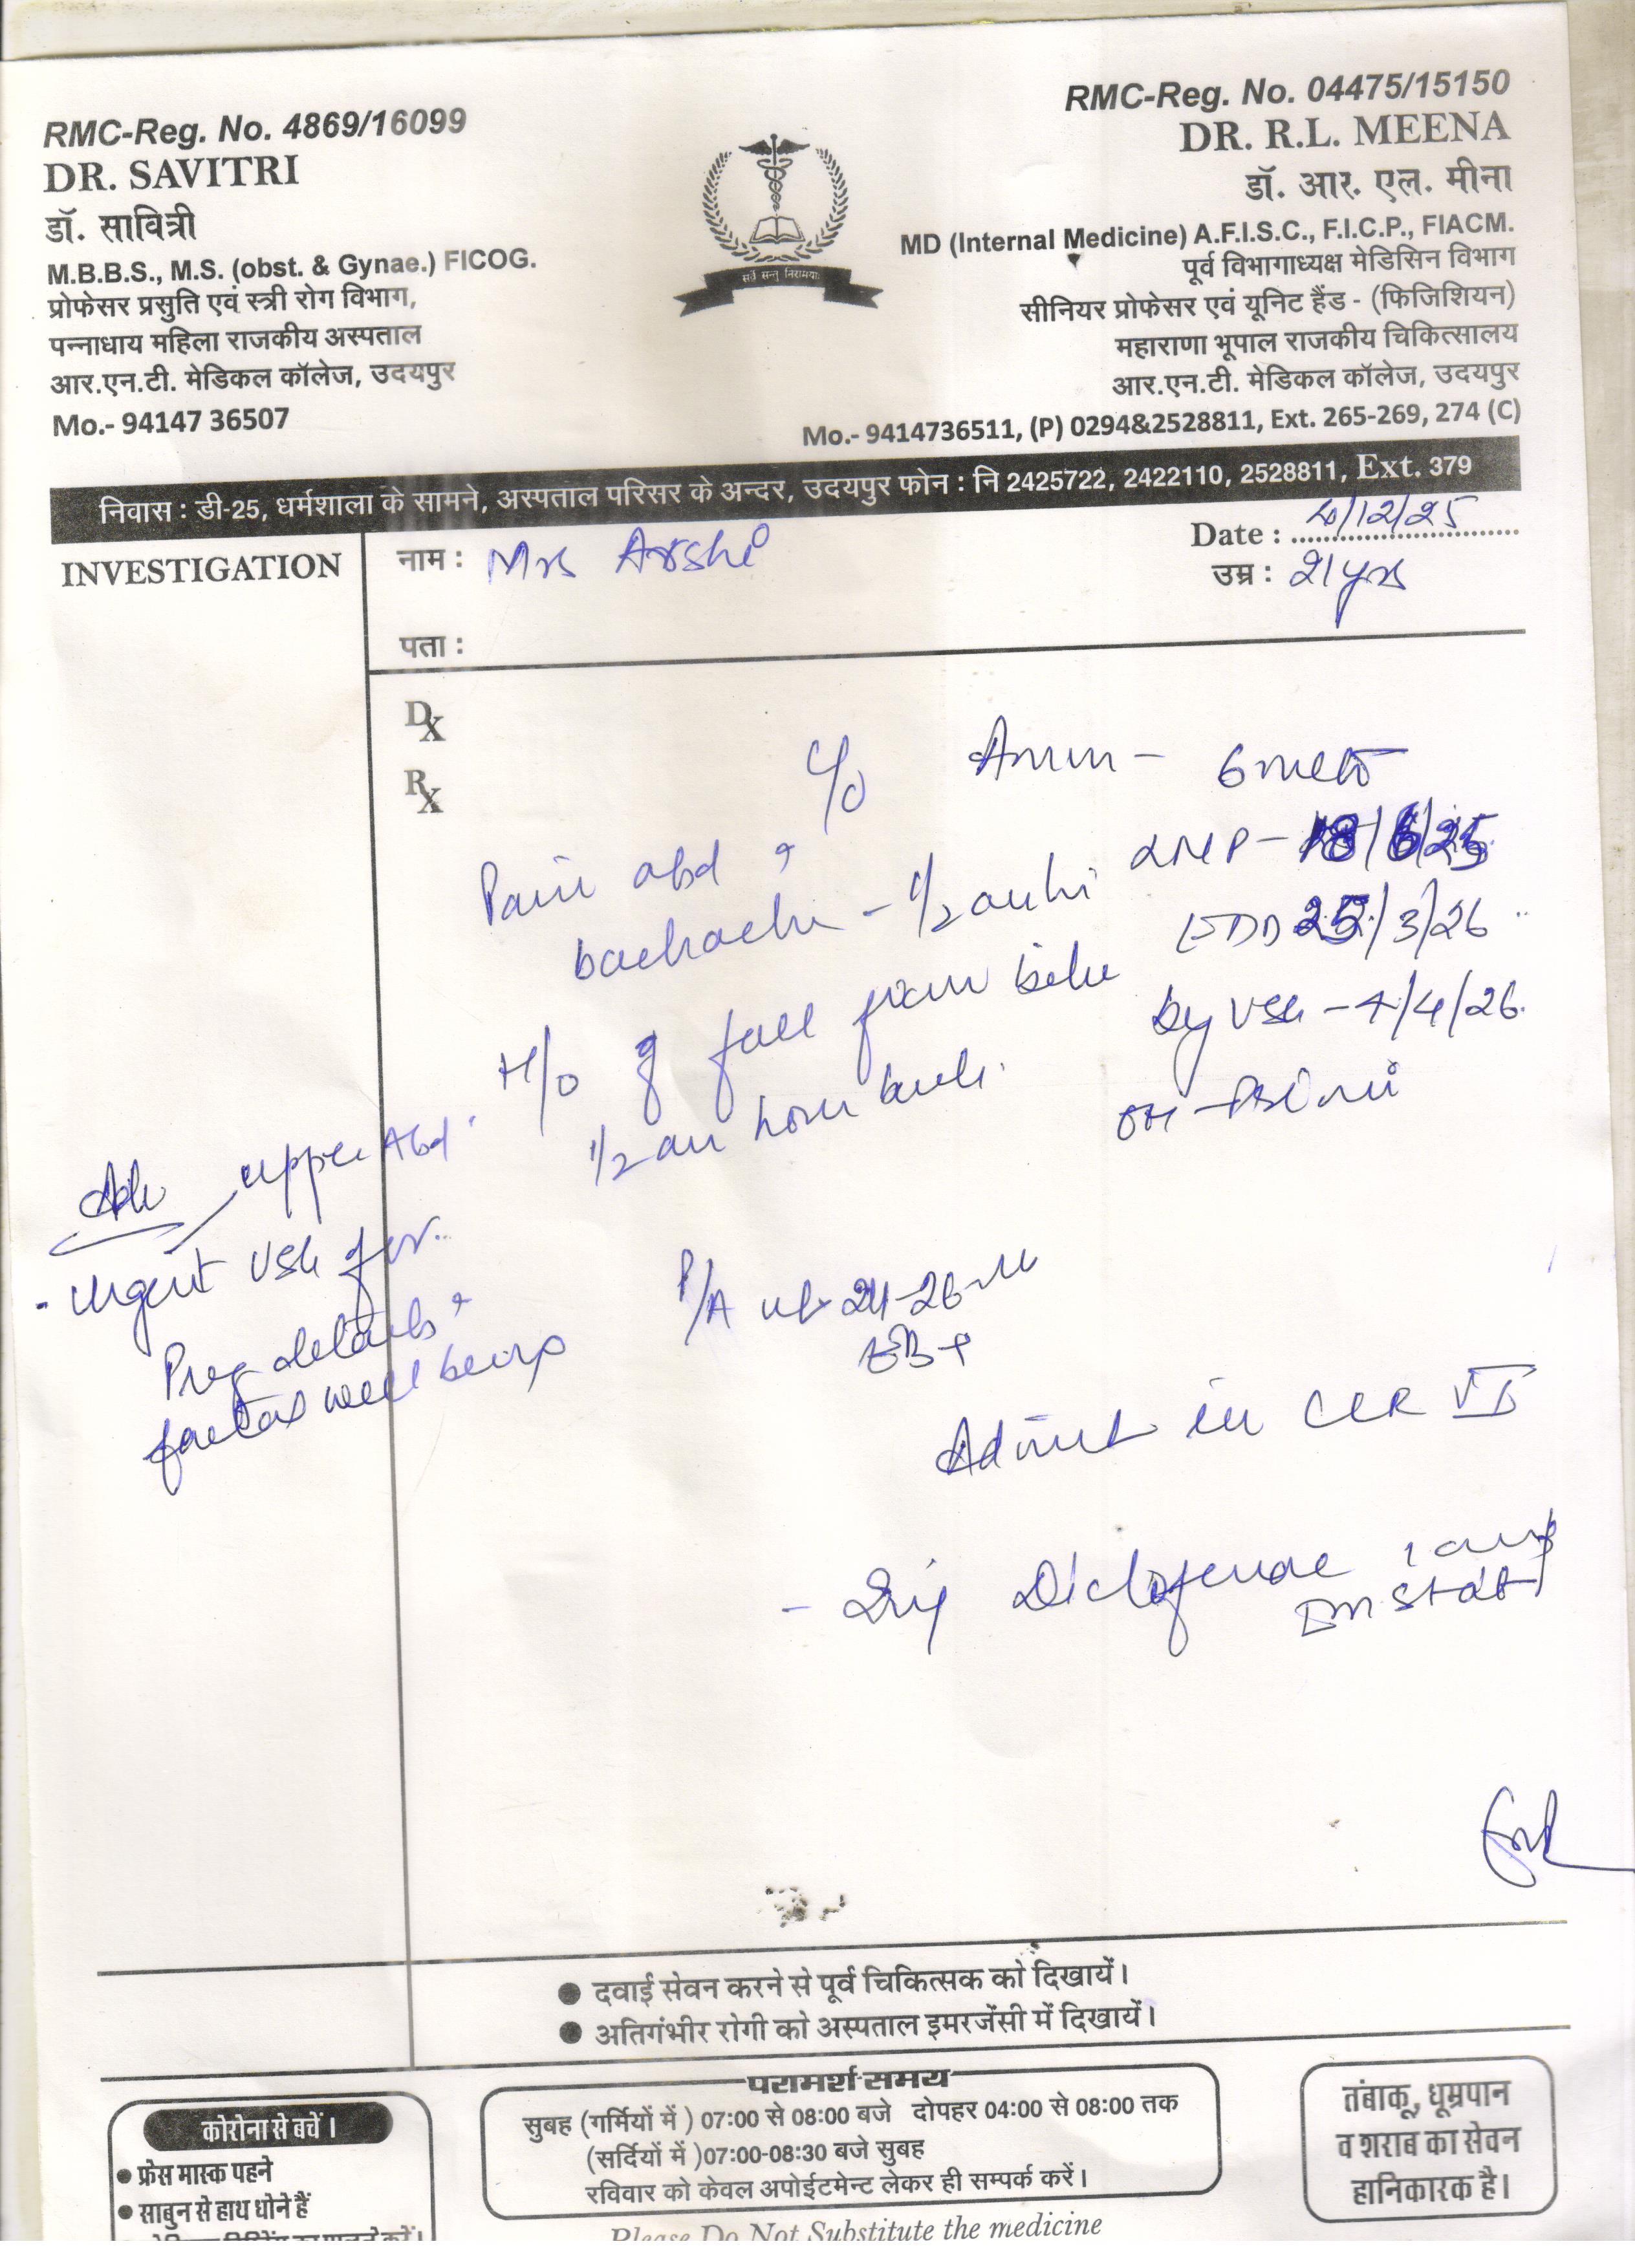 RMC-Reg. No. 4869/16099
DR. SAVITRI
डॉ. सावित्री
M.B.B.S., M.S. (obst. & Gynae.) FICOG.
प्रोफेसर प्रसुति एवं स्त्री रोग विभाग,
पन्नाधाय महिला राजकीय अस्पताल
आर.एन.टी. मेडिकल कॉलेज, उदयपुर
Mo.- 94147 36507
सर्वे सन्तु निरामयाः
RMC-Reg. No. 04475/15150
DR. R.L. MEENA
डॉ. आर. एल. मीना
MD (Internal Medicine) A.F.I.S.C., F.I.C.P., FIACM.
पूर्व विभागाध्यक्ष मेडिसिन विभाग
सीनियर प्रोफेसर एवं यूनिट हैंड - (फिजिशियन)
महाराणा भूपाल राजकीय चिकित्सालय
आर.एन.टी. मेडिकल कॉलेज, उदयपुर
Mo.- 9414736511, (P) 0294&2528811, Ext. 265-269, 274 (C)
निवास : डी-25, धर्मशाला के सामने, अस्पताल परिसर के अन्दर, उदयपुर फोन : नि 2425722, 2422110, 2528811, Ext. 379
INVESTIGATION
नाम : Mrs Arshi
Date : 4/12/25
उम्र : 21 yrs
पता :
Dx
Rx
C/o
Amm - 6 mth
Pain abd &
LMP - 18/6/25
backache - 1/2 an hr
EDD 25/3/26
H/o of fall from bike
by USG - 4/4/26
1/2 an hour back.
OH - Primi
Adv
upper Abd
- Urgent USG for
Preg details &
foetal well being
P/A ut 24-26 w
Admit in
- Inj Diclofenac 1 amp
IM stat
दवाई सेवन करने से पूर्व चिकित्सक को दिखायें।
अतिगंभीर रोगी को अस्पताल इमरजेंसी में दिखायें।
कोरोना से बचें।
• फ्रेस मास्क पहने
• साबुन से हाथ धोने हैं
परामर्श समय
सुबह (गर्मियों में ) 07:00 से 08:00 बजे दोपहर 04:00 से 08:00 तक
(सर्दियों में )07:00-08:30 बजे सुबह
रविवार को केवल अपोईटमेन्ट लेकर ही सम्पर्क करें।
तंबाकू, धूम्रपान
व शराब का सेवन
हानिकारक है।
Please Do Not Substitute the medicine